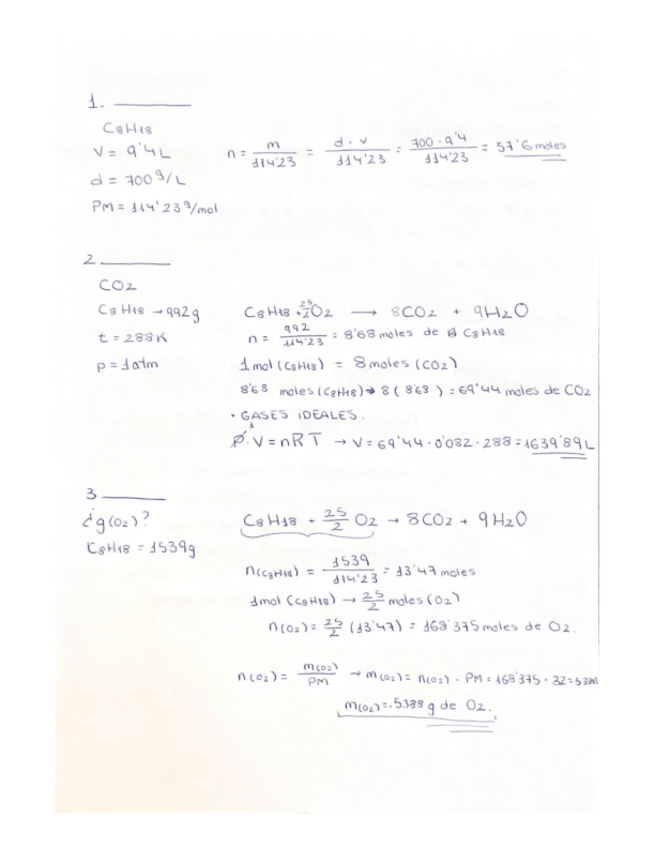 1.
C8H18
V = 9'4 L
d = 700 g/L
PM = 114'23 g/mol
n = m/114'23 = d · v/114'23 = 700 · 9'4/114'23 = 57'6 moles
2
CO2
C8H18 → 992g
t = 288K
p = 1atm
C8H18 + 25/2 O2 → 8CO2 + 9H2O
n = 992/114'23 = 8'68 moles de C8H18
1mol (C8H18) = 8 moles (CO2)
8'68 moles (C8H18) → 8 (8'68) = 69'44 moles de CO2
· GASES IDEALES.
p · V = nRT → V = 69'44 · 0'082 · 288 = 1639'89 L
3
¿g(O2)?
C8H18 = 1539g
C8H18 + 25/2 O2 → 8CO2 + 9H2O
n(C8H18) = 1539/114'23 = 13'47 moles
1mol (C8H18) → 25/2 moles (O2)
n(O2) = 25/2 (13'47) = 168'375 moles de O2.
n(O2) = m(O2)/PM → m(O2) = n(O2) · PM = 168'375 · 32 =
m(O2) = 5388 g de O2.